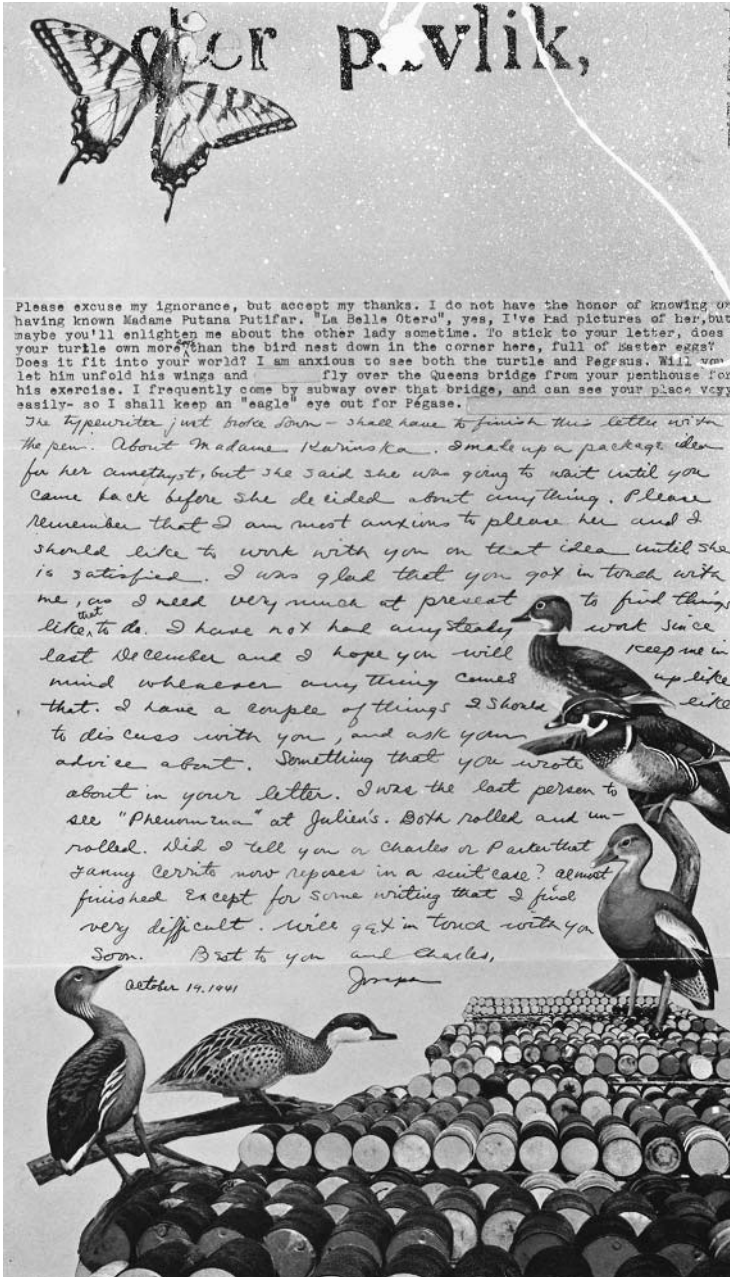 cher pavlik,
Please excuse my ignorance, but accept my thanks. I do not have the honor of knowing or
having known Madame Putana Putifar. "La Belle Otero", yes, I've had pictures of her,but
maybe you'll enlighten me about the other lady sometime. To stick to your letter, does
your turtle own more than the bird nest down in the corner here, full of Easter eggs?
Does it fit into your world? I am anxious to see both the turtle and Pegraus. Will you
let him unfold his wings and fly over the Queens bridge from your penthouse for
his exercise. I frequently come by subway over that bridge, and can see your place veyy
easily- so I shall keep an "eagle" eye out for Pégase.
The typewriter just broke down – shall have to finish this letter with
the pen. About Madame Karinska. I made up a package idea
for her amethyst, but she said she was going to wait until you
came back before she decided about anything. Please
remember that I am most anxious to please her and I
should like to work with you on that idea until she
is satisfied. I was glad that you got in touch with
me, as I need very much at present to find things
like that to do. I have not had any steady work since
last December and I hope you will keep me in
mind whenever anything comes up like
that. I have a couple of things I should like
to discuss with you, and ask your
advice about. Something that you wrote
about in your letter. I was the last person to
see "Phenomena" at Julien's. Both rolled and un-
rolled. Did I tell you or Charles or Parker that
Fanny Cerrito now reposes in a suit case? almost
finished Except for some writing that I find
very difficult. Will get in touch with you
soon. Best to you and Charles,
October 19, 1941 Joseph